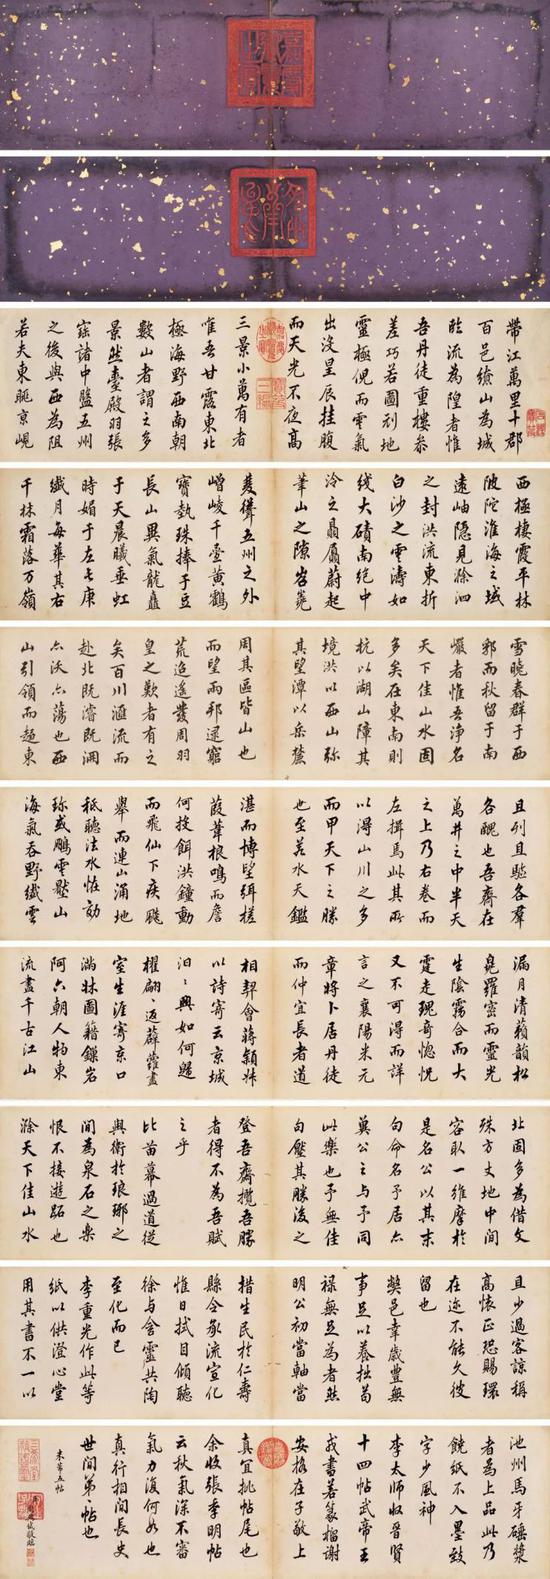 帶江萬里十郡
百邑繚山為城
臨流為隍者惟
吾丹徒重樓參
差巧若圖刻地
靈極倪而雲氣
出沒星辰挂腹
而天光不夜高
三景小萬有者
唯吾甘露東北
極海野西南朝
數山者謂之多
景然臺殿羽張
諸中五州
之後與西為阻
若夫東眺京峴
西極棲霞平林
陂陀淮海之域
遠岫隱見滁泗
之封洪流東折
白沙之雲濤如
线大磧南絶中
泠之贔屭蔚起
筆山之隙岧嶤
聳五州之外
嶒崚千壑黃鶴
寶勢珠捧于豆
長山異氣龍矗
于天晨曦垂虹
時媚于左七庚
纖月每華其右
千林霜落万嶺
雪曉春群于西
郭而秋留于南
巘者惟吾淨名
天下佳山水固
多矣在東南則
杭以湖山障其
境洪以西山弥
其望潭以岳麓
周其區皆山也
而望兩邦還窮
荒追遙叢周羽
皇之歎者有之
矣百川滙流而
赴北既濬既
亦沃亦蕩也西
山引領而趨東
且列且馳各羣
各醜也吾齋在
萬井之中半天
之上乃右卷而
左揖焉此其所
以淂山川之多
而甲天下之勝
也至若水天鑑
湛而博望弭槎
葭葦根鳴而詹
何投餌洪鐘動
而飛仙下疾飈
舉而連山涌地
祇聽法水怪効
珎或鵬雲壓山
海氣吞野纖雲
漏月清籟韻松
皛羅密而靈光
生陰霧合而大
霆走瑰奇惚怳
又不可得而詳
言之襄陽米元
章將卜居丹徒
而仲宣長者道
相契會蔣穎叔
以詩寄云京城
汩〻興如何趨
櫂翩〻返薜蘿畫
室生涯寄京口
滿牀圖籍鏁岩
阿六朝人物東
流盡千古江山
北固多為借文
殊方丈地中間
容取一維摩於
是名公以其末
句命名予居亦
冀公之与予同
此樂也予無佳
句壓其勝後之
登吾齋攬吾勝
者得不為吾賦
之乎
比苗幕過道從
與衛於琅琊之
間為泉石之樂
恨不接遊跖也
滁天下佳山水
且少過客諒稱
高懷正恐賜環
在迩不能久彼
留也
弊邑幸歲豊無
事足以養拙苟
祿無足為者然
明公初當軸當
措生民於仁壽
縣令承流宣化
惟日拭目傾聽
徐與含靈共陶
至化而已
李重光作此等
紙以供澄心堂
用其書不一以
池州馬牙硾漿
者為上品此乃
饒紙不入墨致
字少風神
李太師收晉賢
十四帖武帝王
戎書若篆籀謝
安格在子敬上
真宜批帖尾也
余收張季明帖
云秋氣深不審
氣力復何如也
真行相間長史
世間第一帖也
米芾五帖
敬臨